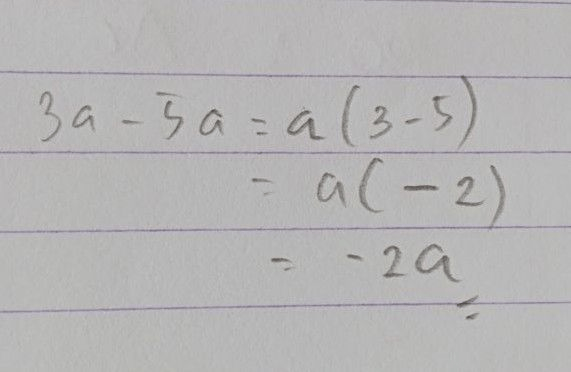 3a - 5a = a(3-5)
= a(-2)
= -2a